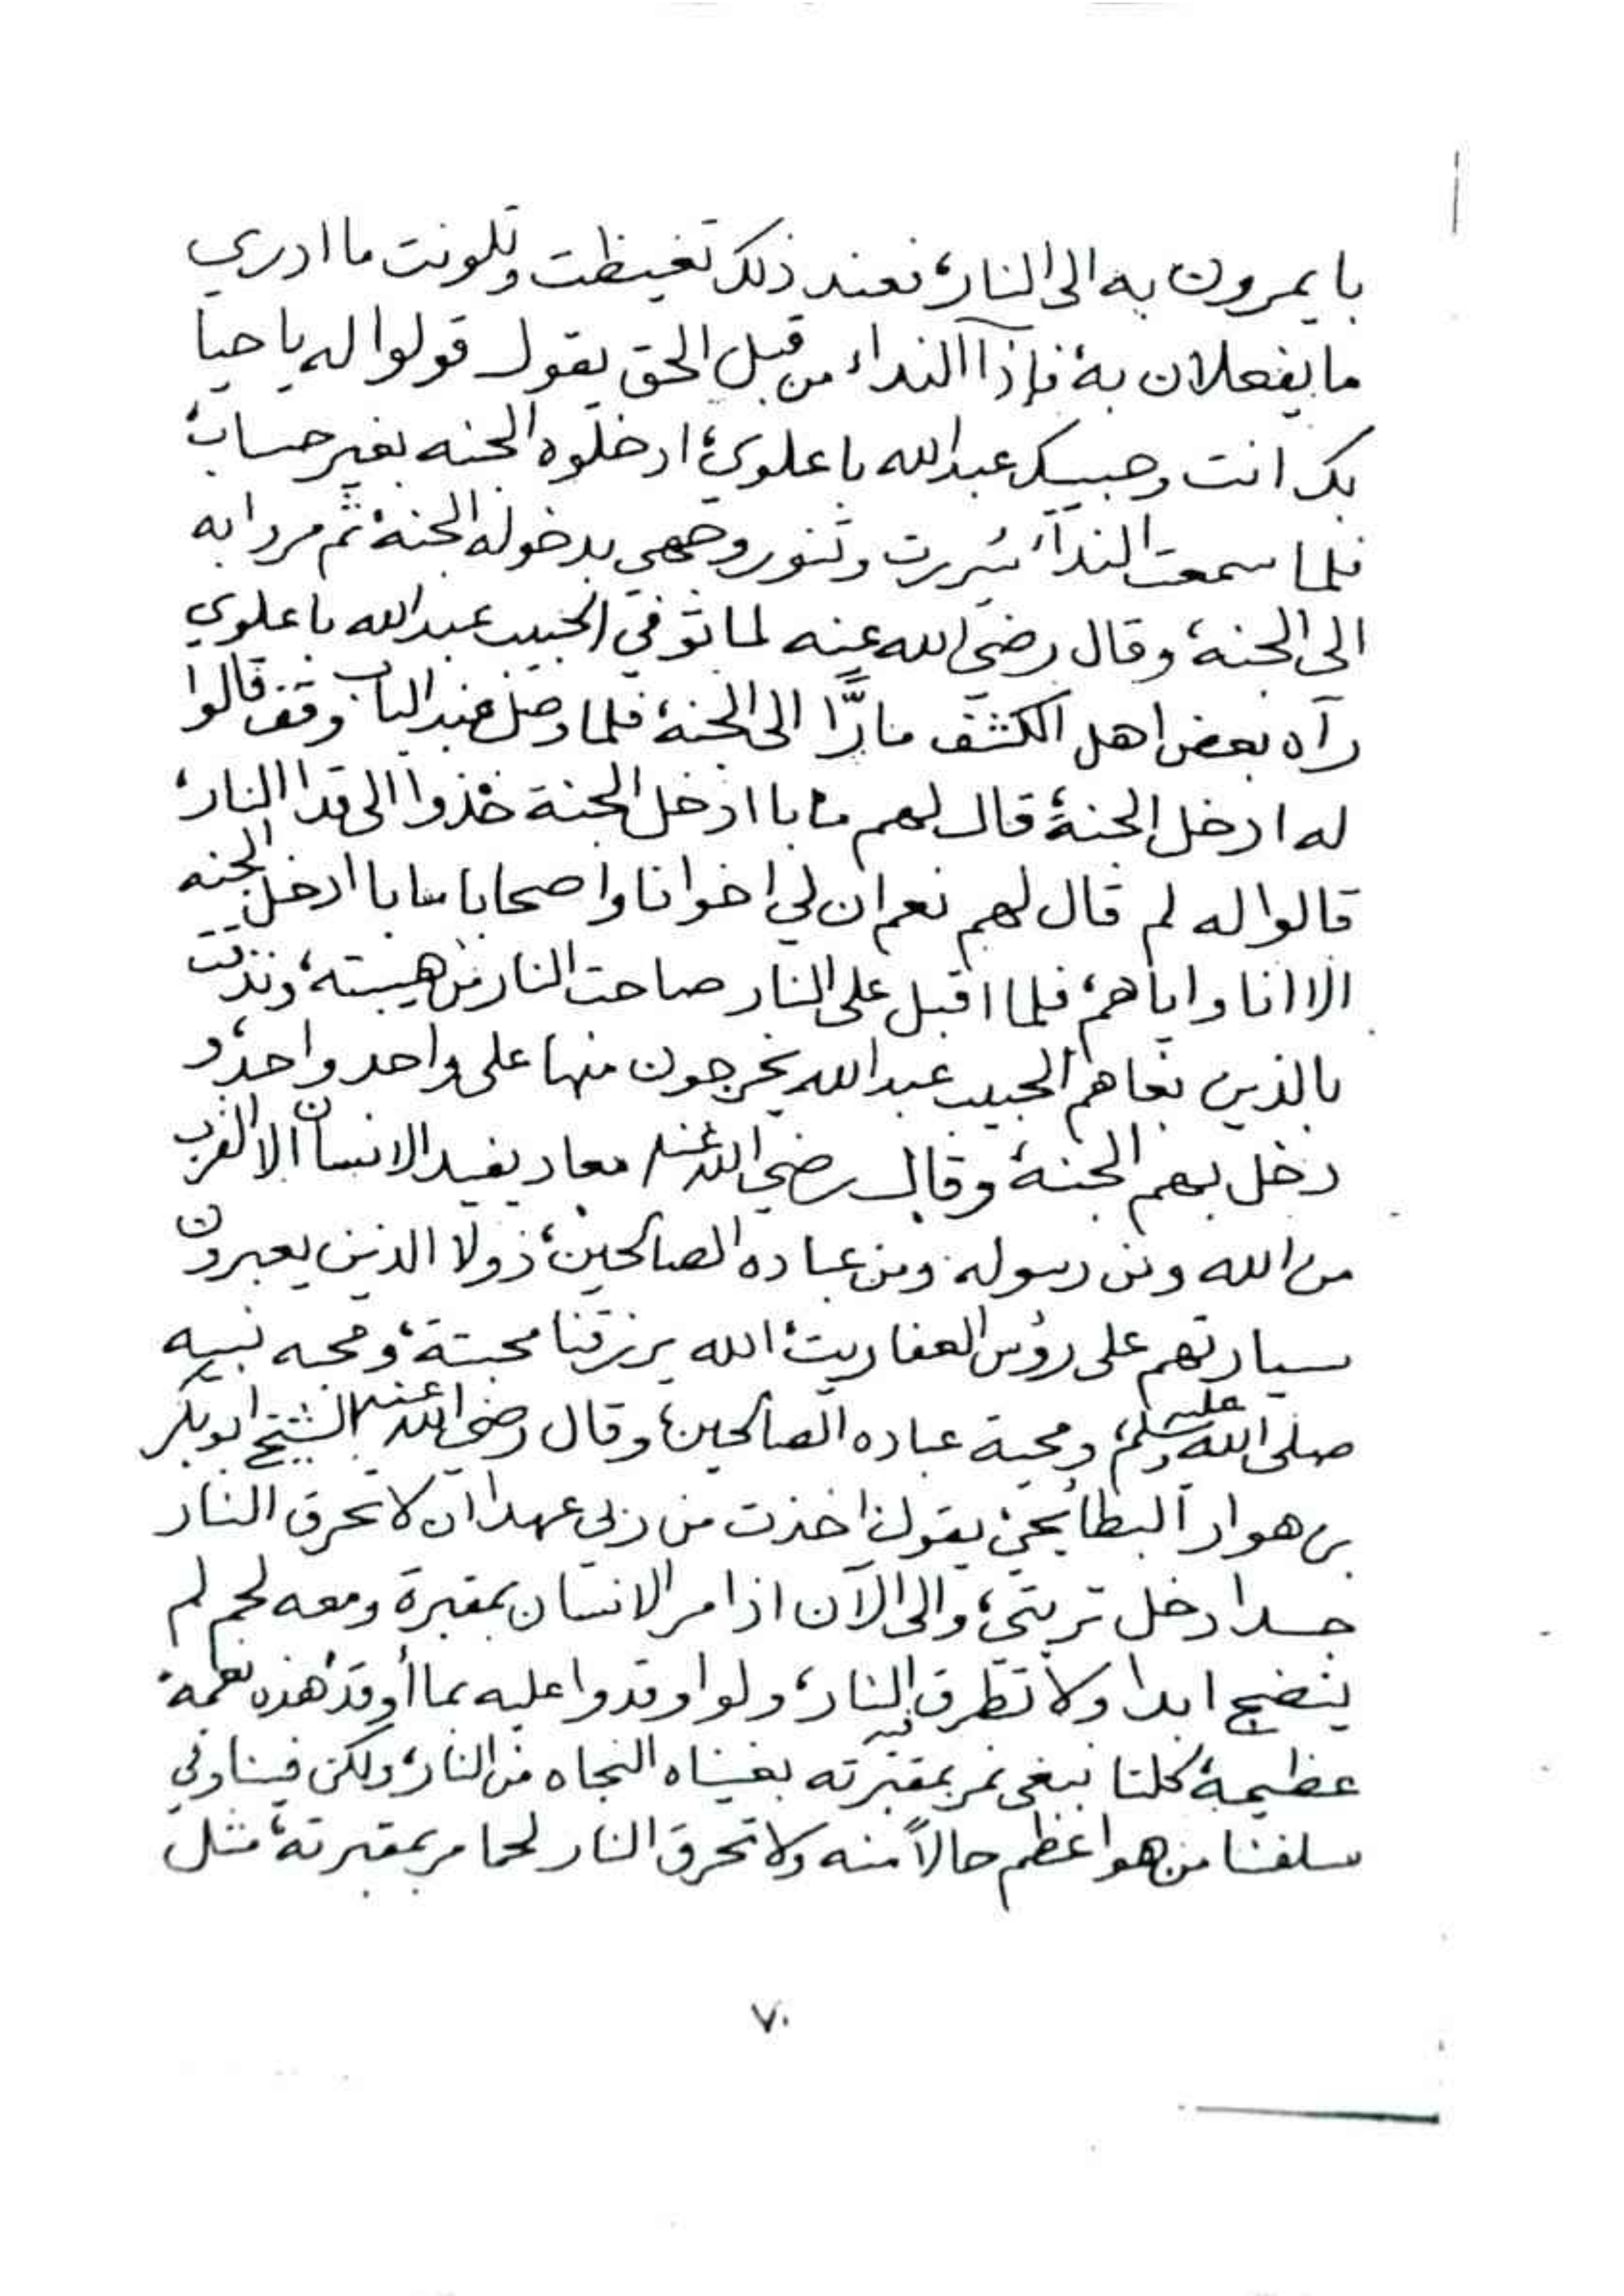 بايمرون به الى النار، فعند ذلك تغيظت وتلونت ما ادري
ما يفعلان به، فإذا النداء من قبل الحق يقول قولوا له يا حيا
بك انت وحبيبك عبدالله باعلوي، ادخلوه الجنه بغير حساب،
فلما سمعت النداء سررت وتنور وجهي بدخوله الجنة، ثم مروا به
الى الجنة، وقال رضي الله عنه لما توفي الحبيب عبدالله باعلوي
رآه بعض اهل الكشف مارًّا الى الجنة، فلما وصل عند الباب وقف قالوا
له ادخل الجنة، قال لهم ما با ادخل الجنة خذوا الى قدا النار،
قالوا له لم قال لهم نعم ان لي اخوانا واصحابا ما با ادخل الجنه
الا انا واياهم، فلما اقبل على النار صاحت النار من هيبته، ونذقت
بالذين بغاهم الحبيب عبدالله يخرجون منها على واحد واحد، و
دخل بهم الجنة، وقال رضي الله عنه معاد يفيد الانسان الا القرب
من الله ومن رسوله ومن عباده الصالحين، ذولا الذين يعبرون
سيارتهم على رؤس العفاريت، الله يرزقنا محبتة، ومحبه نبيه
صلى الله عليه وسلم، ومحبة عباده الصالحين، وقال رضي الله عنه الشيخ ابوبكر
بن هوار البطائحي يقول اخذت من ربي عهدا ان لا تحرق النار
جسدا دخل تربتي، والى الآن اذا مر الانسان بمقبرة ومعه لحم لم
ينضج ابدا ولا تطرق فيه النار، ولو اوقدوا عليه بما أوقد، هذه نعمة
عظيمة، كلنا نبغى نمر بمقبرته بغيناه النجاه من النار، ولكن فينا وفي
سلفنا من هو اعظم حالاً منه ولا تحرق النار لحما مر بمقبرته، مثل
٧٠